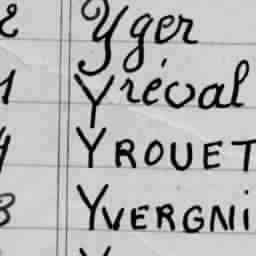 2 Yger
1 Yréval
4 YROUET
3 YVERGNI